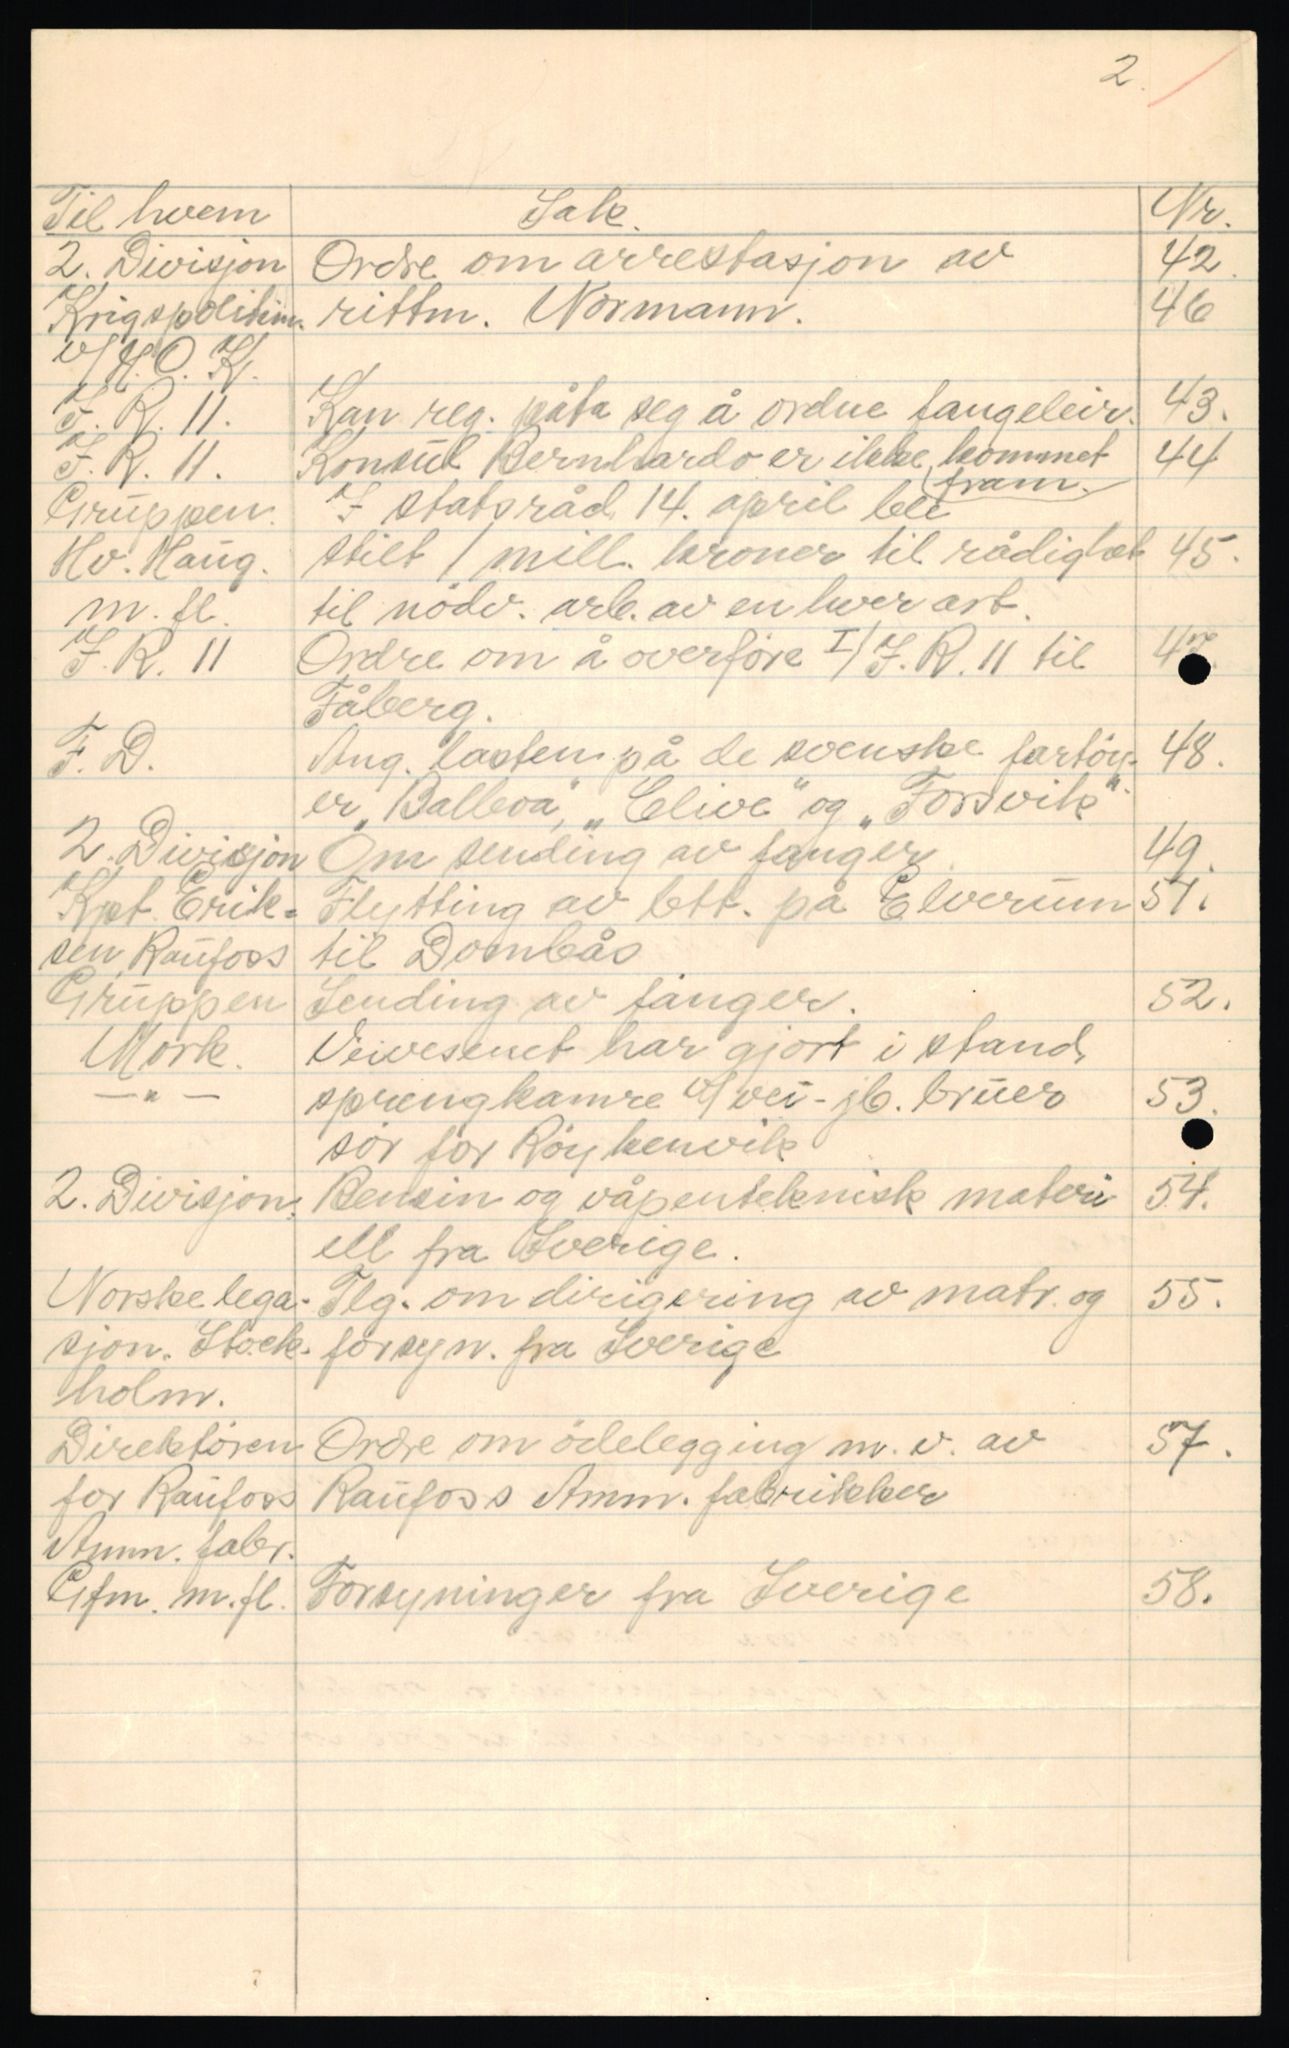 2.
Til hvem Sak. Nr.
2. Divisjon Ordre om arrestasjon av 42.
Krigspolitim. rittm. Normann. 46
v/H.O.K.
I.R. 11. Kan reg. påta seg å ordne fangeleir. 43.
I.R. 11. Konsul Bernhardo er ikke kommet 44
fram.
Gruppen I statsråd 14. april ble
Hv. Haug. stilt 1 mill. kroner til rådighet 45.
m. fl. til nödv. arb. av en hver art.
I.R. 11 Ordre om å overföre I/I.R. 11 til 47.
Fåberg.
F.D. Ang. lasten på de svenske fartöy- 48.
er „Balboa", „Clive" og „Forsvik".
2. Divisjon Om sending av fanger 49.
Kpt. Erik- Flytting av btt. på Elverum 51.
sen Raufoss til Dombås
Gruppen Sending av fanger. 52.
Mork. Veivesenet har gjort i stand
— " — sprengkamre v/vei- jb. bruer 53.
sör for Röykenvik
2. Divisjon. Bensin og våpenteknisk materi 54.
ell fra Sverige.
Norske lega- Tlg. om dirigering av matr. og 55.
sjon. Stock- forsyn. fra Sverige
holm.
Direktören Ordre om ödelegging m. v. av 57.
for Raufoss Raufoss Amm. fabrikker
Amm. fabr.
Gfm. m. fl. Forsyninger fra Sverige 58.